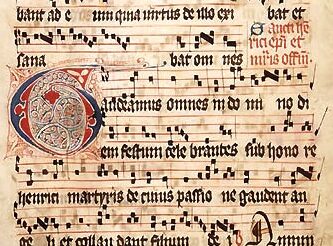 bant ad e um quia uirtus de illo exi bat et
sana bat om nes
Sancti hen
rici epi et
mris offm.
Gaudeamus omnes in do mi no di
em festum cele brantes sub hono re
henrici martyris de cuius passio ne gaudent an
ge li et collau dant filium de